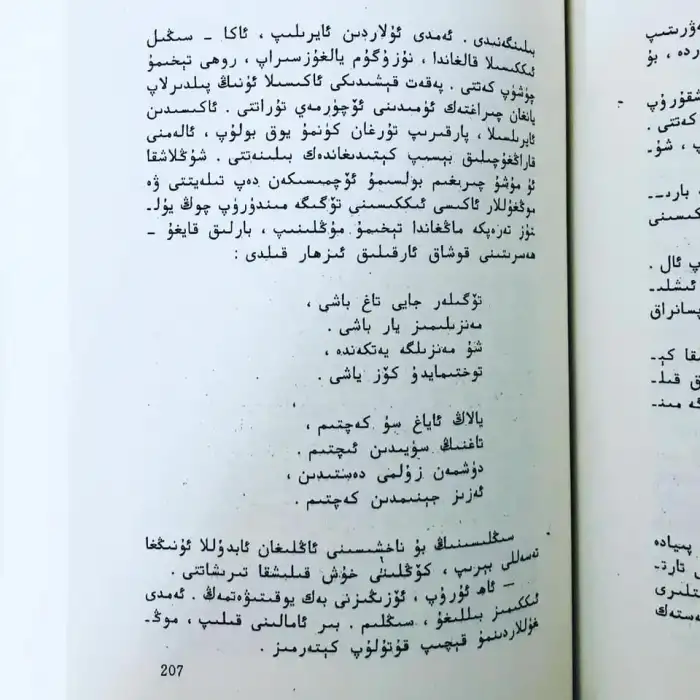 بىلىنگەنىدى . ئەمدى ئۇلاردىن ئايرىلىپ ، ئاكا ـ سىڭىل
ئىككىسىلا قالغاندا ، نۇزۇگۇم يالغۇزسىراپ ، روھى تېخىمۇ
چۈشۈپ كەتتى . پەقەت قېشىدىكى ئاكىسىلا ئۇنىڭ پىلدىرلاپ
يانغان چىراغتەك ئۈمىدىنى ئۆچۈرمەي تۇراتتى . ئاكىسىدىن
ئايرىلسىلا ، پارقىرىپ تۇرغان كۈنمۇ يوق بولۇپ ، ئالەمنى
قاراڭغۇچىلىق بېسىپ كېتىدىغاندەك بىلىنەتتى . شۇڭلاشقا
ئۇ مۇشۇ چىرىغىم بولسىمۇ ئۆچمىسىكەن دەپ تىلەيتتى ۋە
موڭغۇللار ئاكىسى ئىككىسىنى تۆگىگە مىندۈرۈپ چوڭ يۇلـ
تۇز تەرەپكە ماڭغاندا تېخىمۇ مۇڭلىنىپ ، بارلىق قايغۇ ـ
ھەسرىتىنى قوشاق ئارقىلىق ئىزھار قىلدى :
تۆگىلەر جايى تاغ باشى ،
مەنزىلىمىز يار باشى .
شۇ مەنزىلگە يەتكەندە ،
توختىمايدۇ كۆز يېشى .
يالاڭ ئاياغ سۇ كەچتىم ،
تاغنىڭ سۈيىدىن ئىچتىم .
دۈشمەن زۇلمى دەستىدىن ،
ئەزىز جېنىمدىن كەچتىم .
سىڭلىسىنىڭ بۇ ناخشىسىنى ئاڭلىغان ئابدۇللا ئۇنىڭغا
تەسەللى بېرىپ ، كۆڭلىنى خۇش قىلىشقا تىرىشاتتى .
— ئاھ ئۇرۇپ ، ئۆزىڭىزنى بەك يوقىتىۋەتمەڭ . ئەمدى
ئىككىمىز بىللىغۇ ، سىڭلىم . بىر ئامالىنى قىلىپ ، موڭـ
غۇللاردىنمۇ قېچىپ قۇتۇلۇپ كېتەرمىز .
207